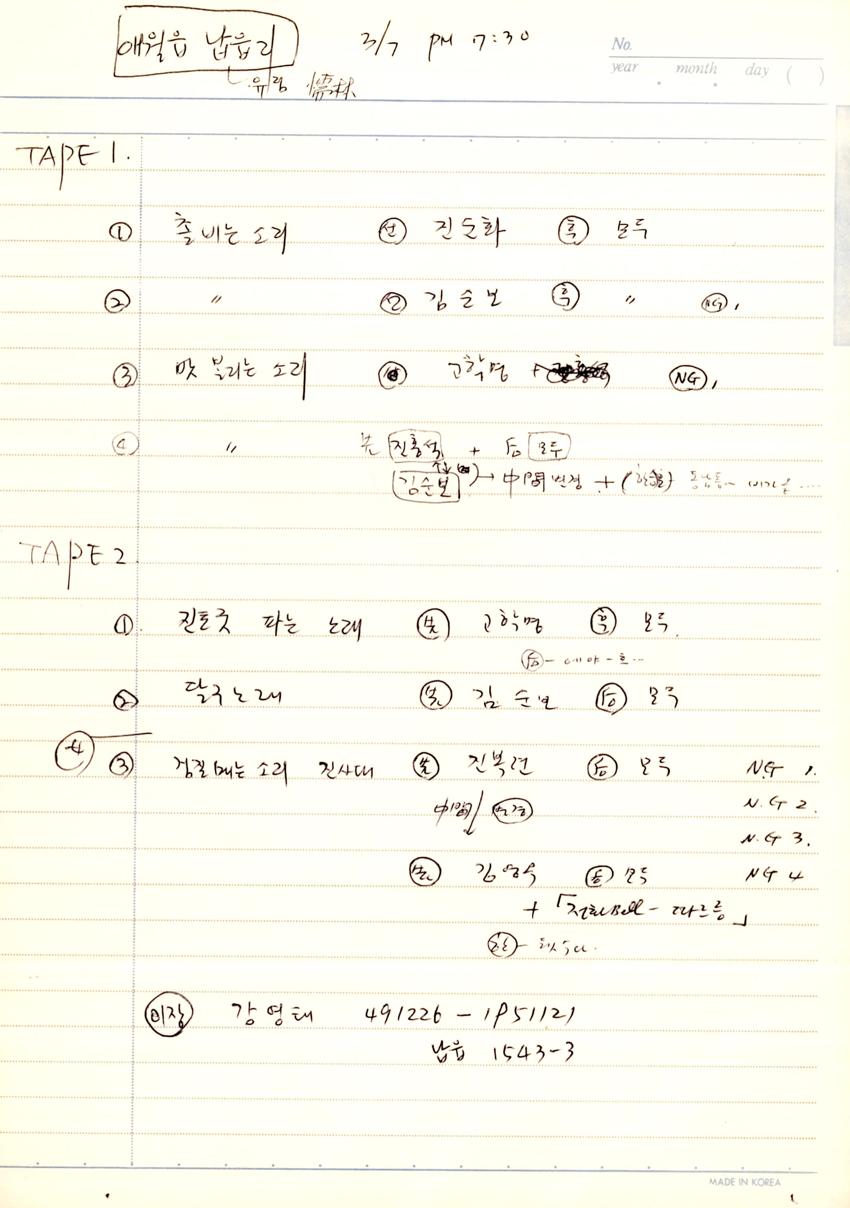 애월읍 납읍리 3/7 PM 7:30
유림 儒林
No.
year month day ( )
TAPE 1.
① 촐 비는 소리 선 진순화 훅 모두
② 〃 선 김순보 훅 〃 NG,
③ 맛 불리는 소리 고학명 + NG,
④ 〃 본 진홍석 + 后 모두
김순보 → 中間 변경 +
TAPE 2
① 진토굿 파는 노래 본 고학명 훅 모두.
后 - 에야 - 호...
② 달구노래 본 김순보 后 모두
4 ③ 검질매는 소리 진사대 본 진복련 后 모두 NG 1.
中間 변경 N.G 2.
N.G 3.
본 后 모두 NG 4
+ 「전화Bell - 따르릉」
이장 강영태 491226 - 1951121
납읍 1543-3
MADE IN KOREA